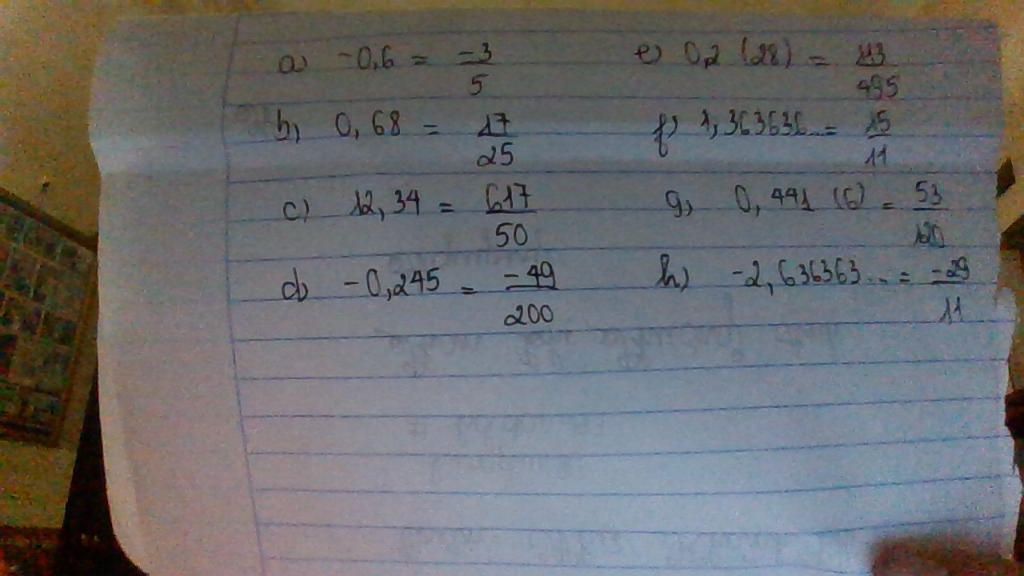 a) -0,6 = -3/5 e) 0,2 (28) = 113/495
b, 0,68 = 17/25 f, 1,363636... = 15/11
c) 12,34 = 617/50 g, 0,441 (6) = 53/120
d) -0,245 = -49/200 h) -2,636363... = -29/11